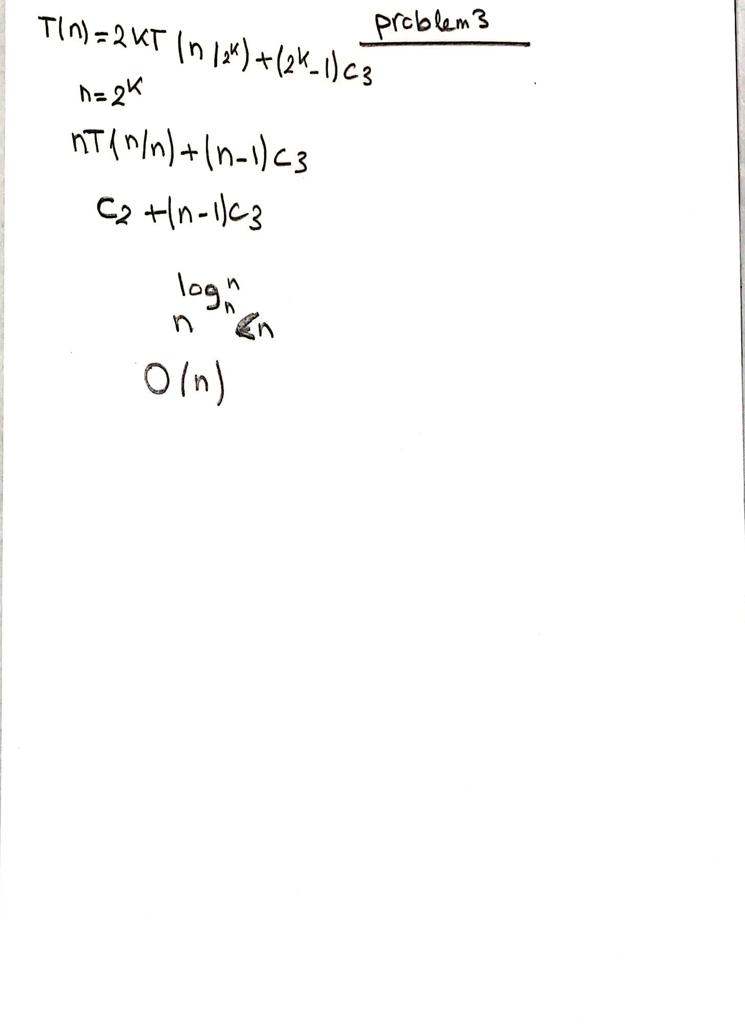 problem 3
T(n) = 2KT (n/2ᴷ) + (2K-1)c3
n = 2ᴷ
nT(n/n) + (n-1)c3
C2 + (n-1)c3
log n n
n ≤ n
O(n)